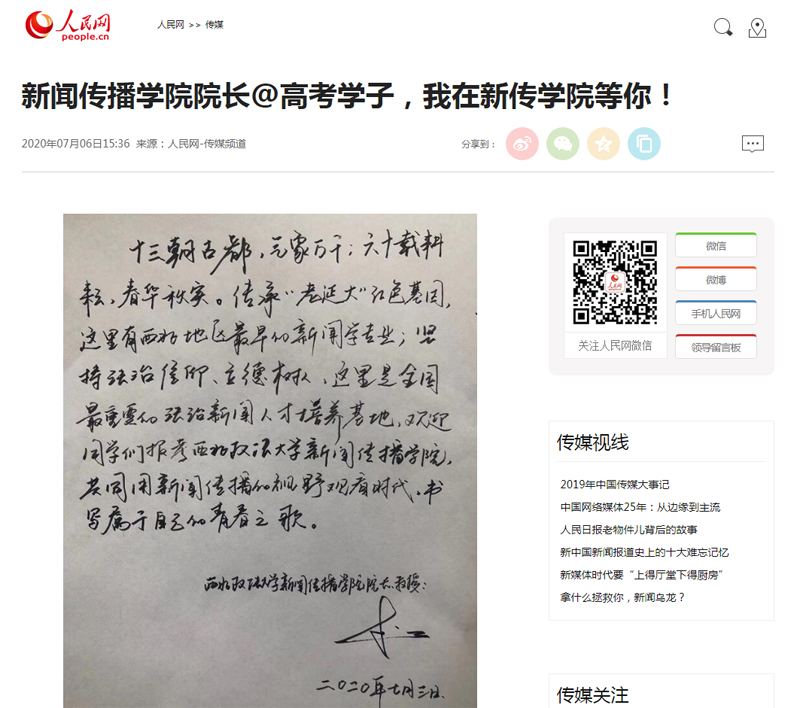 人民网
people.cn
人民网 >> 传媒
新闻传播学院院长@高考学子，我在新传学院等你！
2020年07月06日15:36 来源：人民网-传媒频道
分享到：
十三朝古都，气象万千；六十载耕
耘，春华秋实。传承“老延大”红色基因，
这里有西北地区最早的新闻学专业；坚
持法治信仰、立德树人，这里是全国
最重要的法治新闻人才培养基地，欢迎
同学们报考西北政法大学新闻传播学院，
共同用新闻传播的视野观看时代、书
写属于自己的青春之歌。
西北政法大学新闻传播学院院长 教授：
二〇二〇年七月三日
人民网
关注人民网微信
微信
微博
手机人民网
领导留言板
传媒视线
2019年中国传媒大事记
中国网络媒体25年：从边缘到主流
人民日报老物件儿背后的故事
新中国新闻报道史上的十大难忘记忆
新媒体时代要“上得厅堂下得厨房”
拿什么拯救你，新闻乌龙？
传媒关注